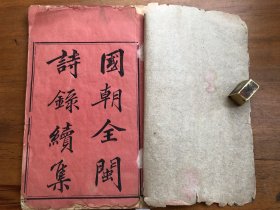 國朝全閩
詩錄續集